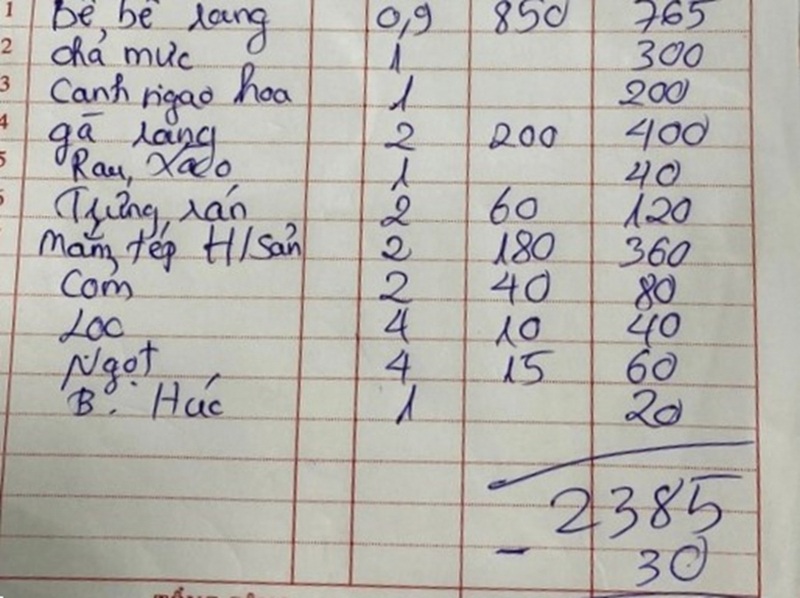 1 Bề, bề rang 0,9 850 765
2 chả mực 1 300
3 Canh ngao hoa 1 200
4 gà rang 2 200 400
5 Rau, xào 1 40
Trứng, rán 2 60 120
Mắm, tép H/sản 2 180 360
Cơm 2 40 80
Lọc 4 10 40
Ngọt 4 15 60
B. Húc 1 20
2385
- 30